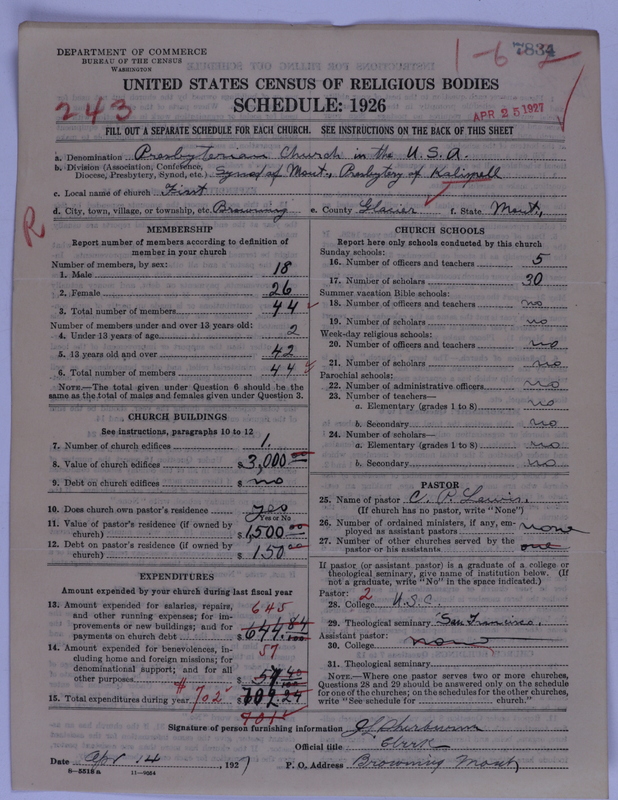 DEPARTMENT OF COMMERCE
BUREAU OF THE CENSUS
WASHINGTON
1-6 2
7834
UNITED STATES CENSUS OF RELIGIOUS BODIES
SCHEDULE: 1926
243
APR 25 1927
FILL OUT A SEPARATE SCHEDULE FOR EACH CHURCH. SEE INSTRUCTIONS ON THE BACK OF THIS SHEET
a. Denomination Presbyterian Church in the U.S.A.
b. Division (Association, Conference, Diocese, Presbytery, Synod, etc.) Synod of Mont., Presbytery of Kalispell
c. Local name of church First
d. City, town, village, or township, etc. Browning e. County Glacier f. State Mont.,
R
MEMBERSHIP
Report number of members according to definition of
member in your church
Number of members, by sex:
1. Male 18
2. Female 26
3. Total number of members 44
Number of members under and over 13 years old:
4. Under 13 years of age 2
5. 13 years old and over 42
6. Total number of members 44
NOTE.—The total given under Question 6 should be
same as the total of males and females given under Question 3.
CHURCH BUILDINGS
See instructions, paragraphs 10 to 12
7. Number of church edifices 1.
8. Value of church edifices $ 3,000 00
9. Debt on church edifices $ no
10. Does church own pastor's residence yes
Yes or No
11. Value of pastor's residence (if owned by
church) $ 1,500 00
12. Debt on pastor's residence (if owned by
church) $ 150 00
EXPENDITURES
Amount expended by your church during last fiscal year
13. Amount expended for salaries, repairs,
and other running expenses; for im-
provements or new buildings; and for
payments on church debt $ 645
14. Amount expended for benevolences, in-
cluding home and foreign missions; for
denominational support; and for all
other purposes $ 57
15. Total expenditures during year # 702
CHURCH SCHOOLS
Report here only schools conducted by this church
Sunday schools:
16. Number of officers and teachers 5
17. Number of scholars 30
Summer vacation Bible schools:
18. Number of officers and teachers no
19. Number of scholars no
Week-day religious schools:
20. Number of officers and teachers no
21. Number of scholars no
Parochial schools:
22. Number of administrative officers no
23. Number of teachers—
a. Elementary (grades 1 to 8) no
b. Secondary no
24. Number of scholars—
a. Elementary (grades 1 to 8) no
b. Secondary no
PASTOR
25. Name of pastor C. P. Lewis.
(If church has no pastor, write "None")
26. Number of ordained ministers, if any, em-
ployed as assistant pastors none
27. Number of other churches served by the
pastor or his assistants one
If pastor (or assistant pastor) is a graduate of a college or
theological seminary, give name of institution below. (If
not a graduate, write "No" in the space indicated.)
Pastor: 2
28. College U.S.C.
29. Theological seminary San Francisco.
Assistant pastor:
30. College none
31. Theological seminary
NOTE.—Where one pastor serves two or more churches,
Questions 28 and 29 should be answered only on the schedule
for one of the churches; on the schedules for the other churches,
write "See schedule for church."
Signature of person furnishing information J L Sherburne
Official title Clerk
Date Apr 14, 1927 P. O. Address Browning Mont,
8-5516 a 11-9054